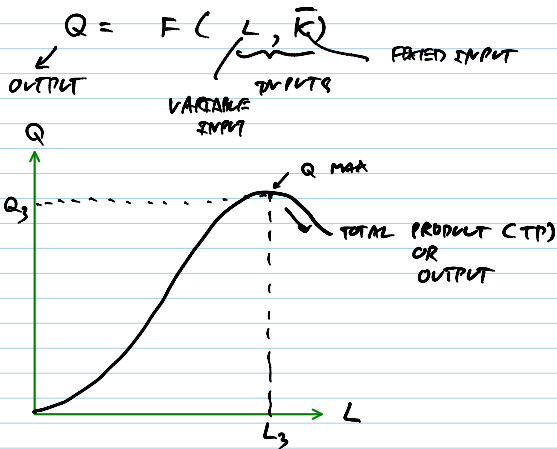 Q = F ( L , K̅ )
OUTPUT
INPUTS
FIXED INPUT
VARIABLE
INPUT
Q
Q MAX
Q3
TOTAL PRODUCT (TP)
OR
OUTPUT
L
L3